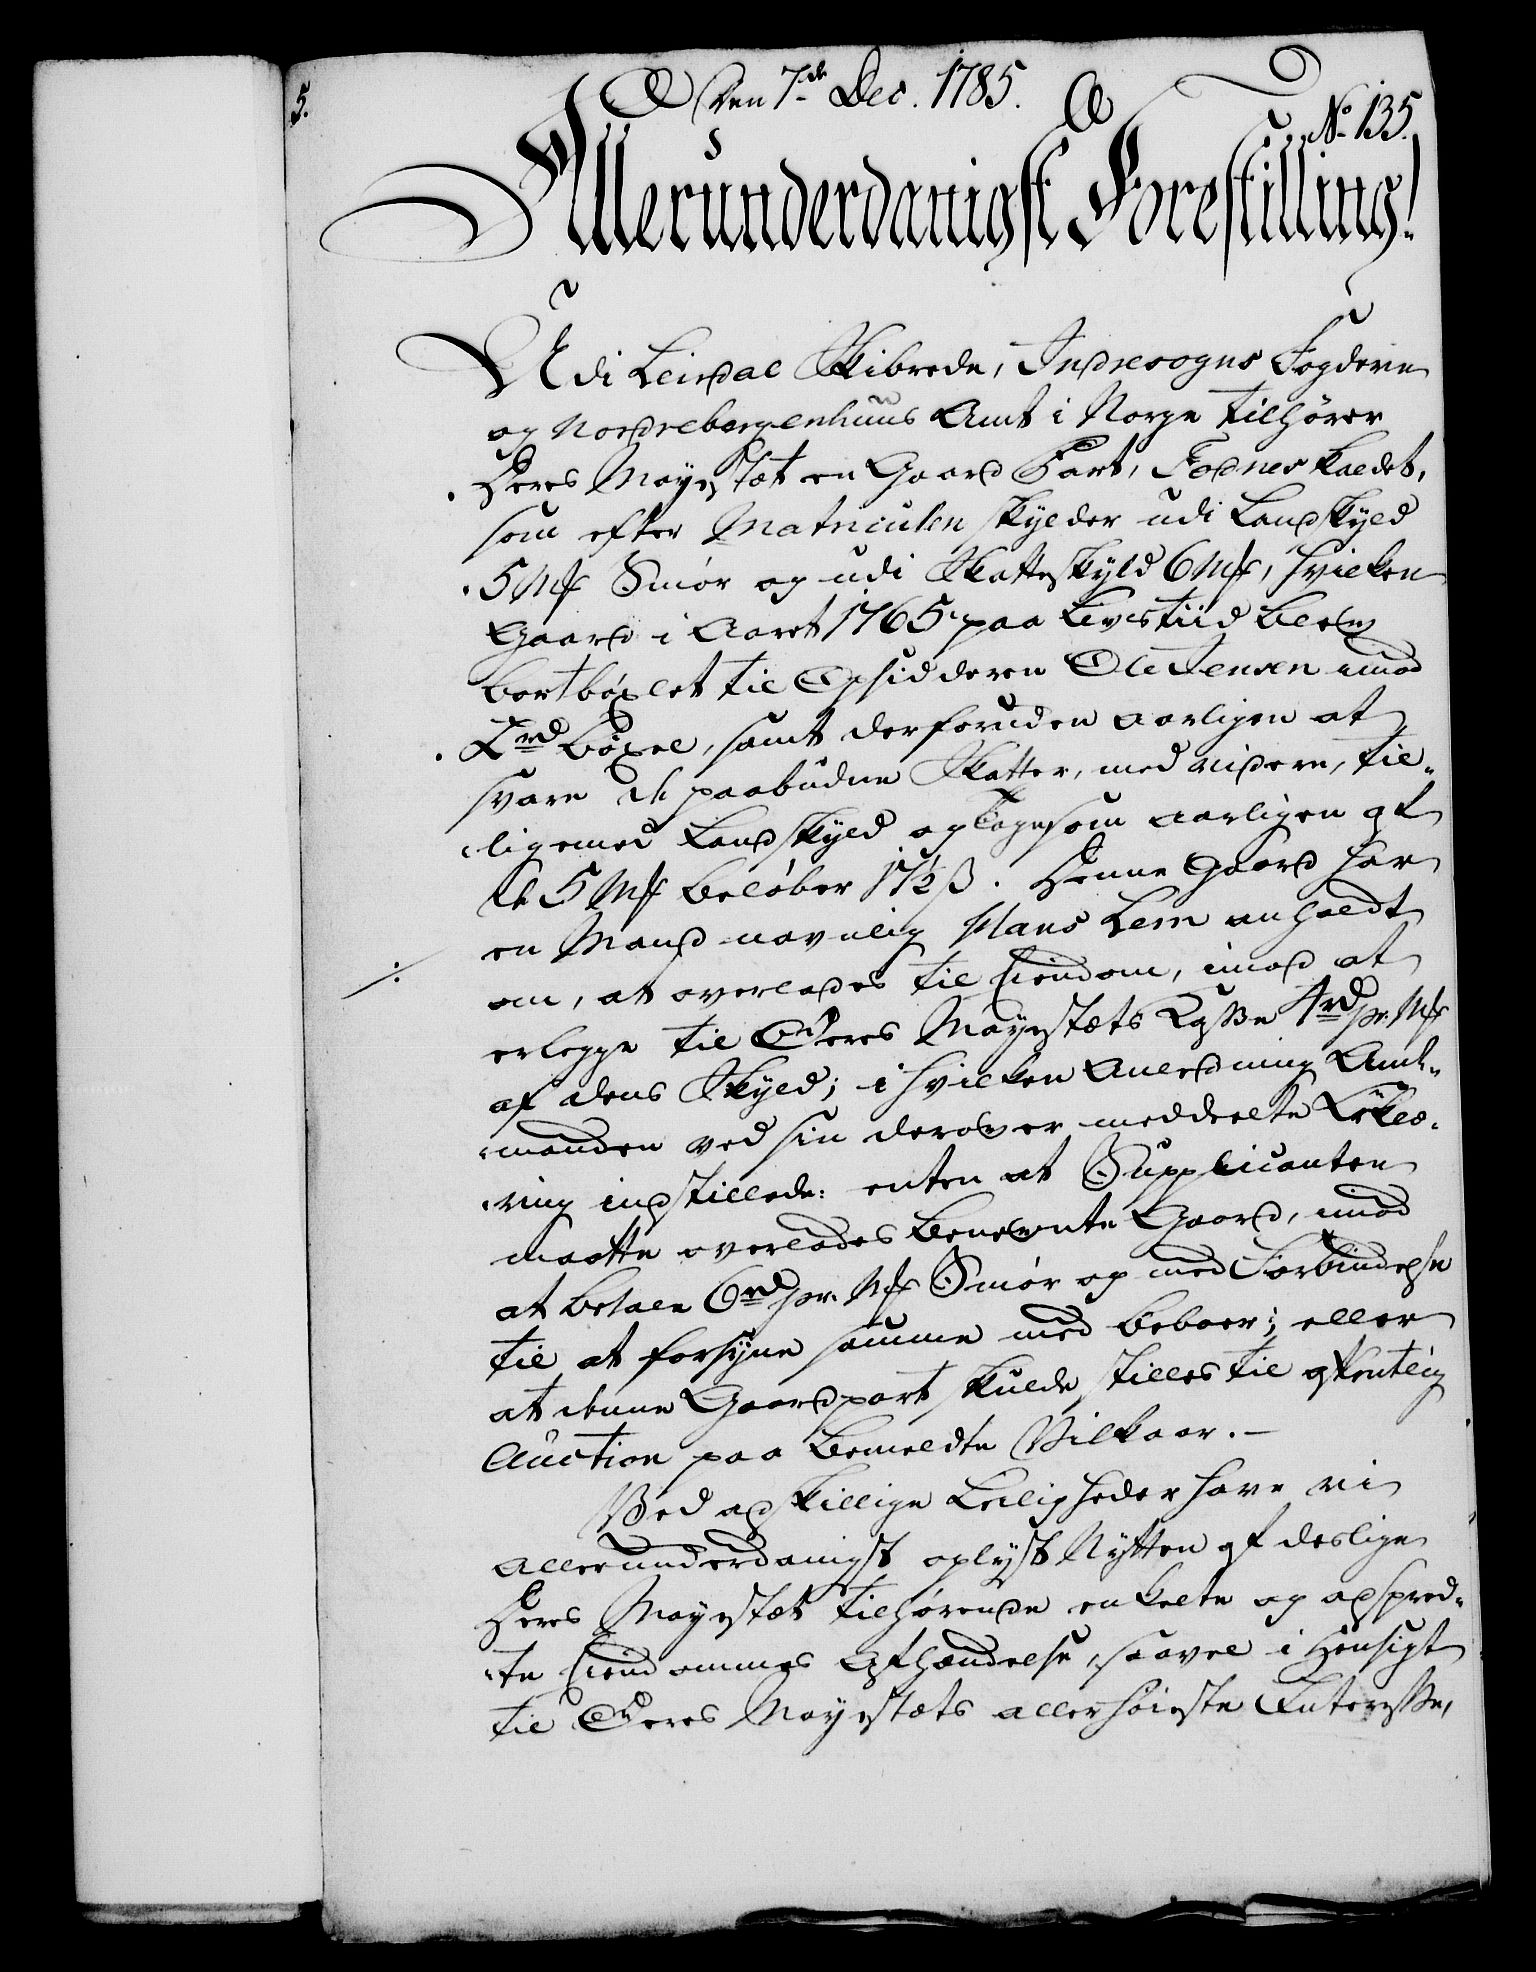 5.
Den 7de Dec. 1785.
No 135.
Allerunderdanigst Forestilling!
Udi Leirdal Skibrede, Indresogns Fogderie
og Nordrebergenhuus Amt i Norge tilhører
Deres Mayestæt en Gaard Part, Fodnes kaldet,
som efter Matriculen skylder udi Landskyld
5 Mk Smør og udi Skatteskyld 6 Mk, hvilken
Gaard i Aaret 1765 paa Livstiid blev
bortbøxlet til Opsidderen Ole Jensen imod
2rd Bøxel, samt derforuden aarligen at
svare de paabudne Skatter, med videre, til-
ligemed Landskyld og som aarligen af
de 5 Mk beløber 17½ ß. Denne Gaard har
en Mand navnlig Hans Lem anholdt
om, at overlades til Eiendom, imod at
erlegge til Deres Mayestæts Casse 4rd pr. Mk
af dens Skyld; i hvilken Anledning Amt-
manden ved sin derover meddeelte Erklæ-
ring indstillede: enten at Supplicanten
maatte overlades benevnte Gaard, imod
at betale 6rd pr. Mk Smør og med Forbindelse
til at forsyne samme med Beboer; eller
at denne Gaardpart skulde stilles til offentlig
Auction paa bemeldte Vilkaar.—
Ved adskillige Leiligheder have vi
allerunderdanigst oplyst Nytten af deslige
Deres Mayestæt tilhørende enkelte og adspred-
te Eiendommes Afhændelse, saavel i Hensigt
til Deres Mayestæts allerhøieste Interesse,